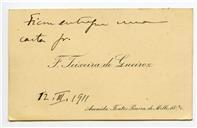 Ficou entregue uma
carta pr.
F. Teixeira de Queiroz
12. III. 1911
Avenida Fontes Pereira de Mello,